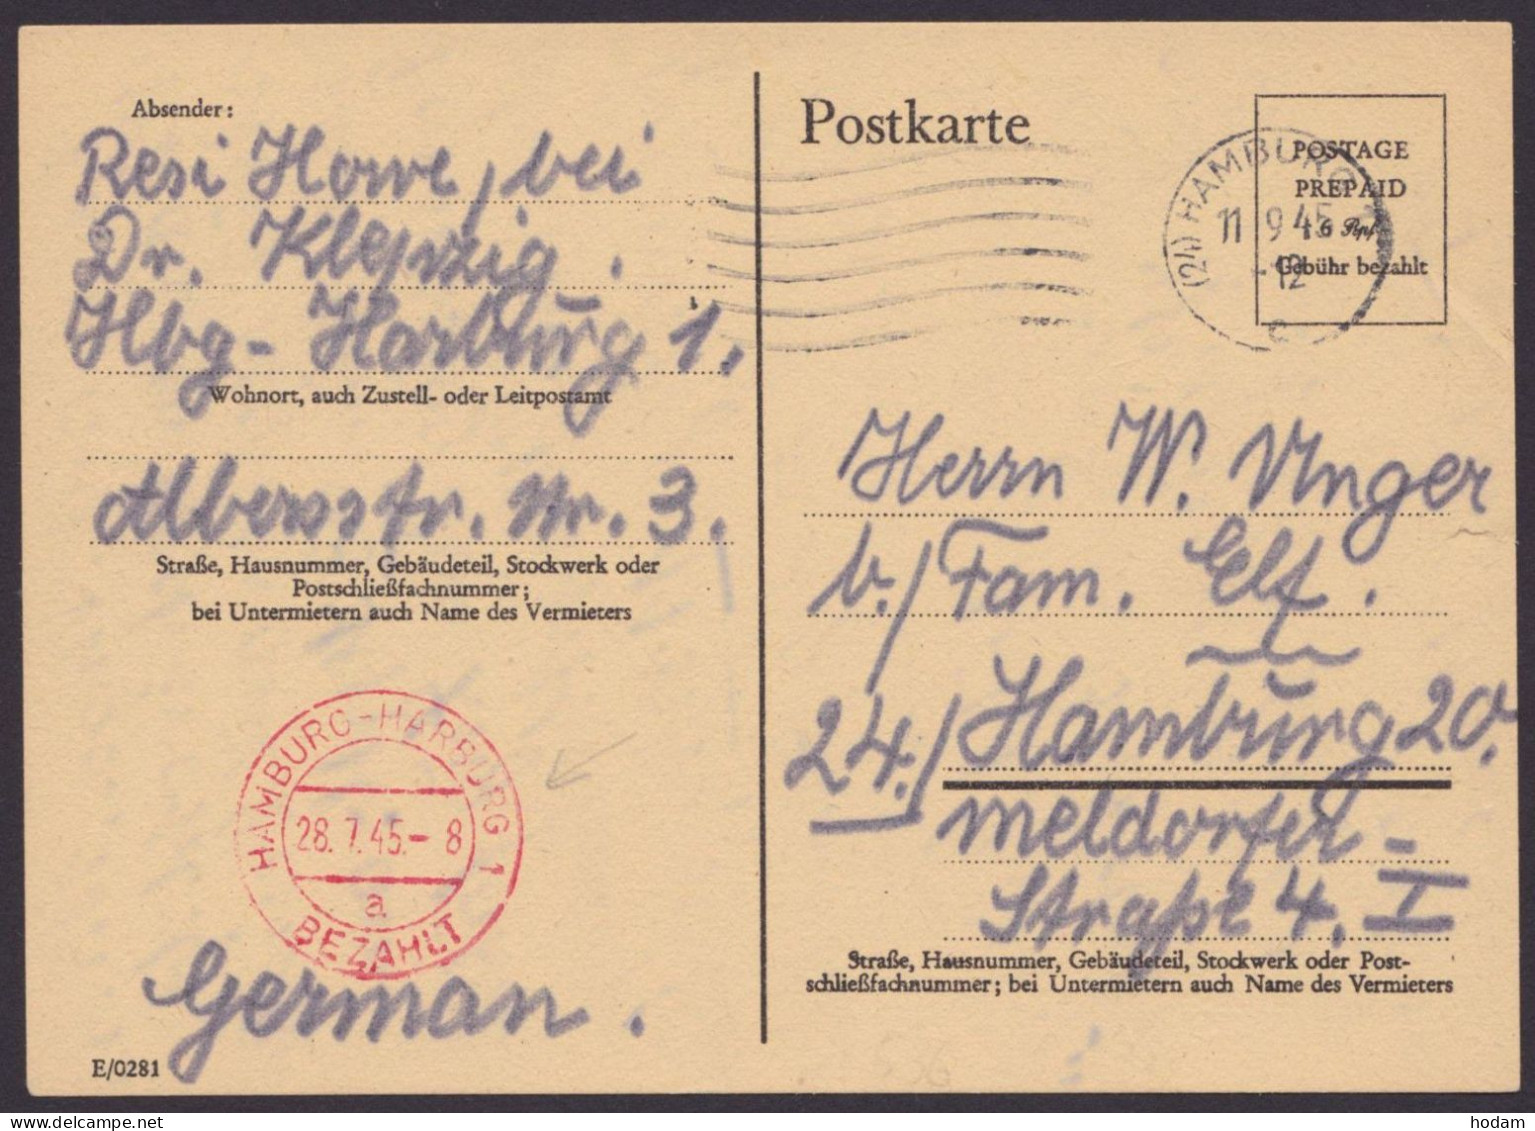 Absender:
Resi Howe, bei
Dr. Klepzig.
Hbg-Harburg 1.
Wohnort, auch Zustell- oder Leitpostamt
Albersstr. Nr. 3.
Straße, Hausnummer, Gebäudeteil, Stockwerk oder
Postschließfachnummer;
bei Untermietern auch Name des Vermieters
HAMBURG-HARBURG 1
28.7.45.-8
a
BEZAHLT
German.
E/0281
Postkarte
POSTAGE
PREPAID
6 Rpf
Gebühr bezahlt
(24) HAMBURG
11.9.45
-12
c
Herrn W. Unger
b./Fam. Elf.
24./Hamburg 20.
Meldorfer-
Straße 4. I
Straße, Hausnummer, Gebäudeteil, Stockwerk oder Post-
schließfachnummer; bei Untermietern auch Name des Vermieters
hodam